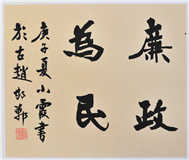 廉政
為民
庚子夏小霞書
於古趙邯鄲